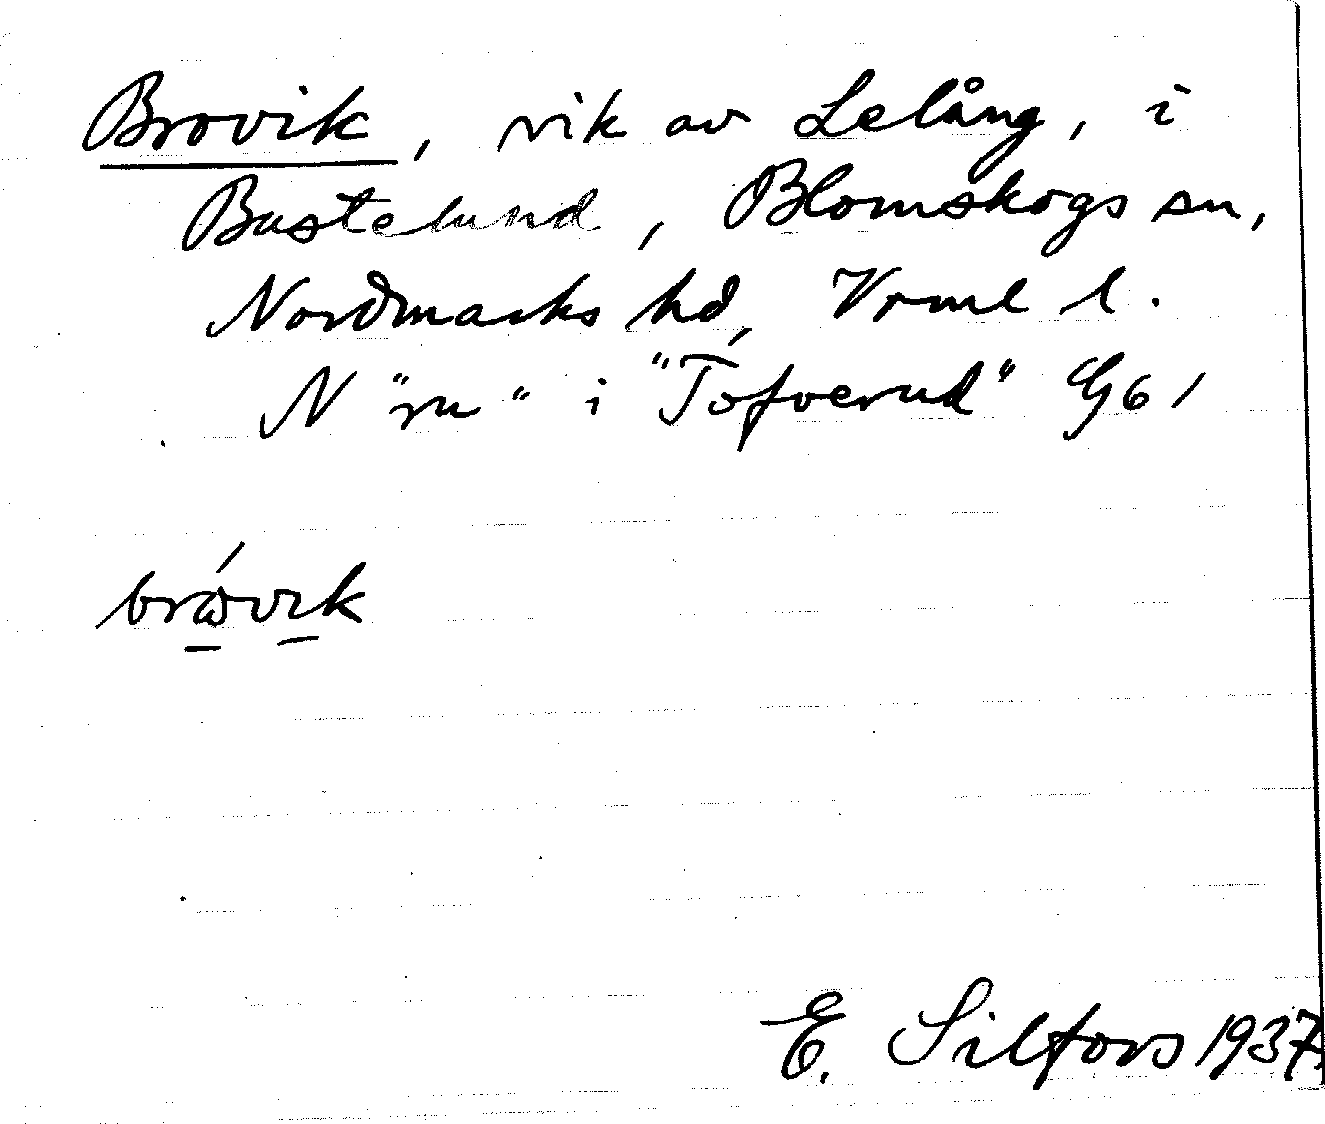 Brovik, vik av Lelång, i
Bastelund, Blomskogs sn,
Nordmarks hd, Vrml l.
N "ru" i "Tofverud" G61
brωvɪk
E. Silfors 1937